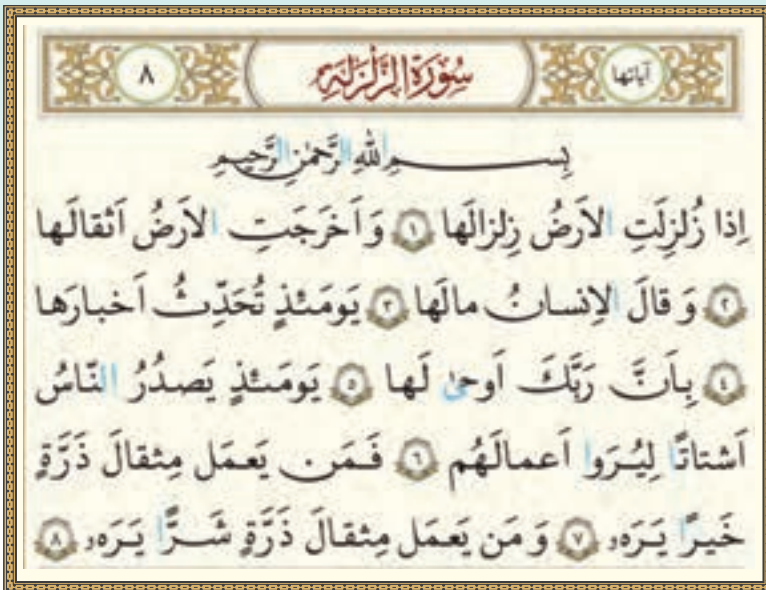 آياتها سُورَةُ الزَّلزَلَةِ ٨
بِسمِ اللهِ الرَّحمٰنِ الرَّحيمِ
اِذا زُلزِلَتِ الاَرضُ زِلزالَها ١ وَ اَخرَجَتِ الاَرضُ اَثقالَها
٢ وَ قالَ الاِنسانُ مالَها ٣ يَومَئذٍ تُحَدِّثُ اَخبارَها
٤ بِاَنَّ رَبَّكَ اَوحىٰ لَها ٥ يَومَئذٍ يَصدُرُ النّاسُ
اَشتاتًا لِيُرَوا اَعمالَهُم ٦ فَمَن يَعمَل مِثقالَ ذَرَّةٍ
خَيرًا يَرَهۥ ٧ وَ مَن يَعمَل مِثقالَ ذَرَّةٍ شَرًّا يَرَهۥ ٨